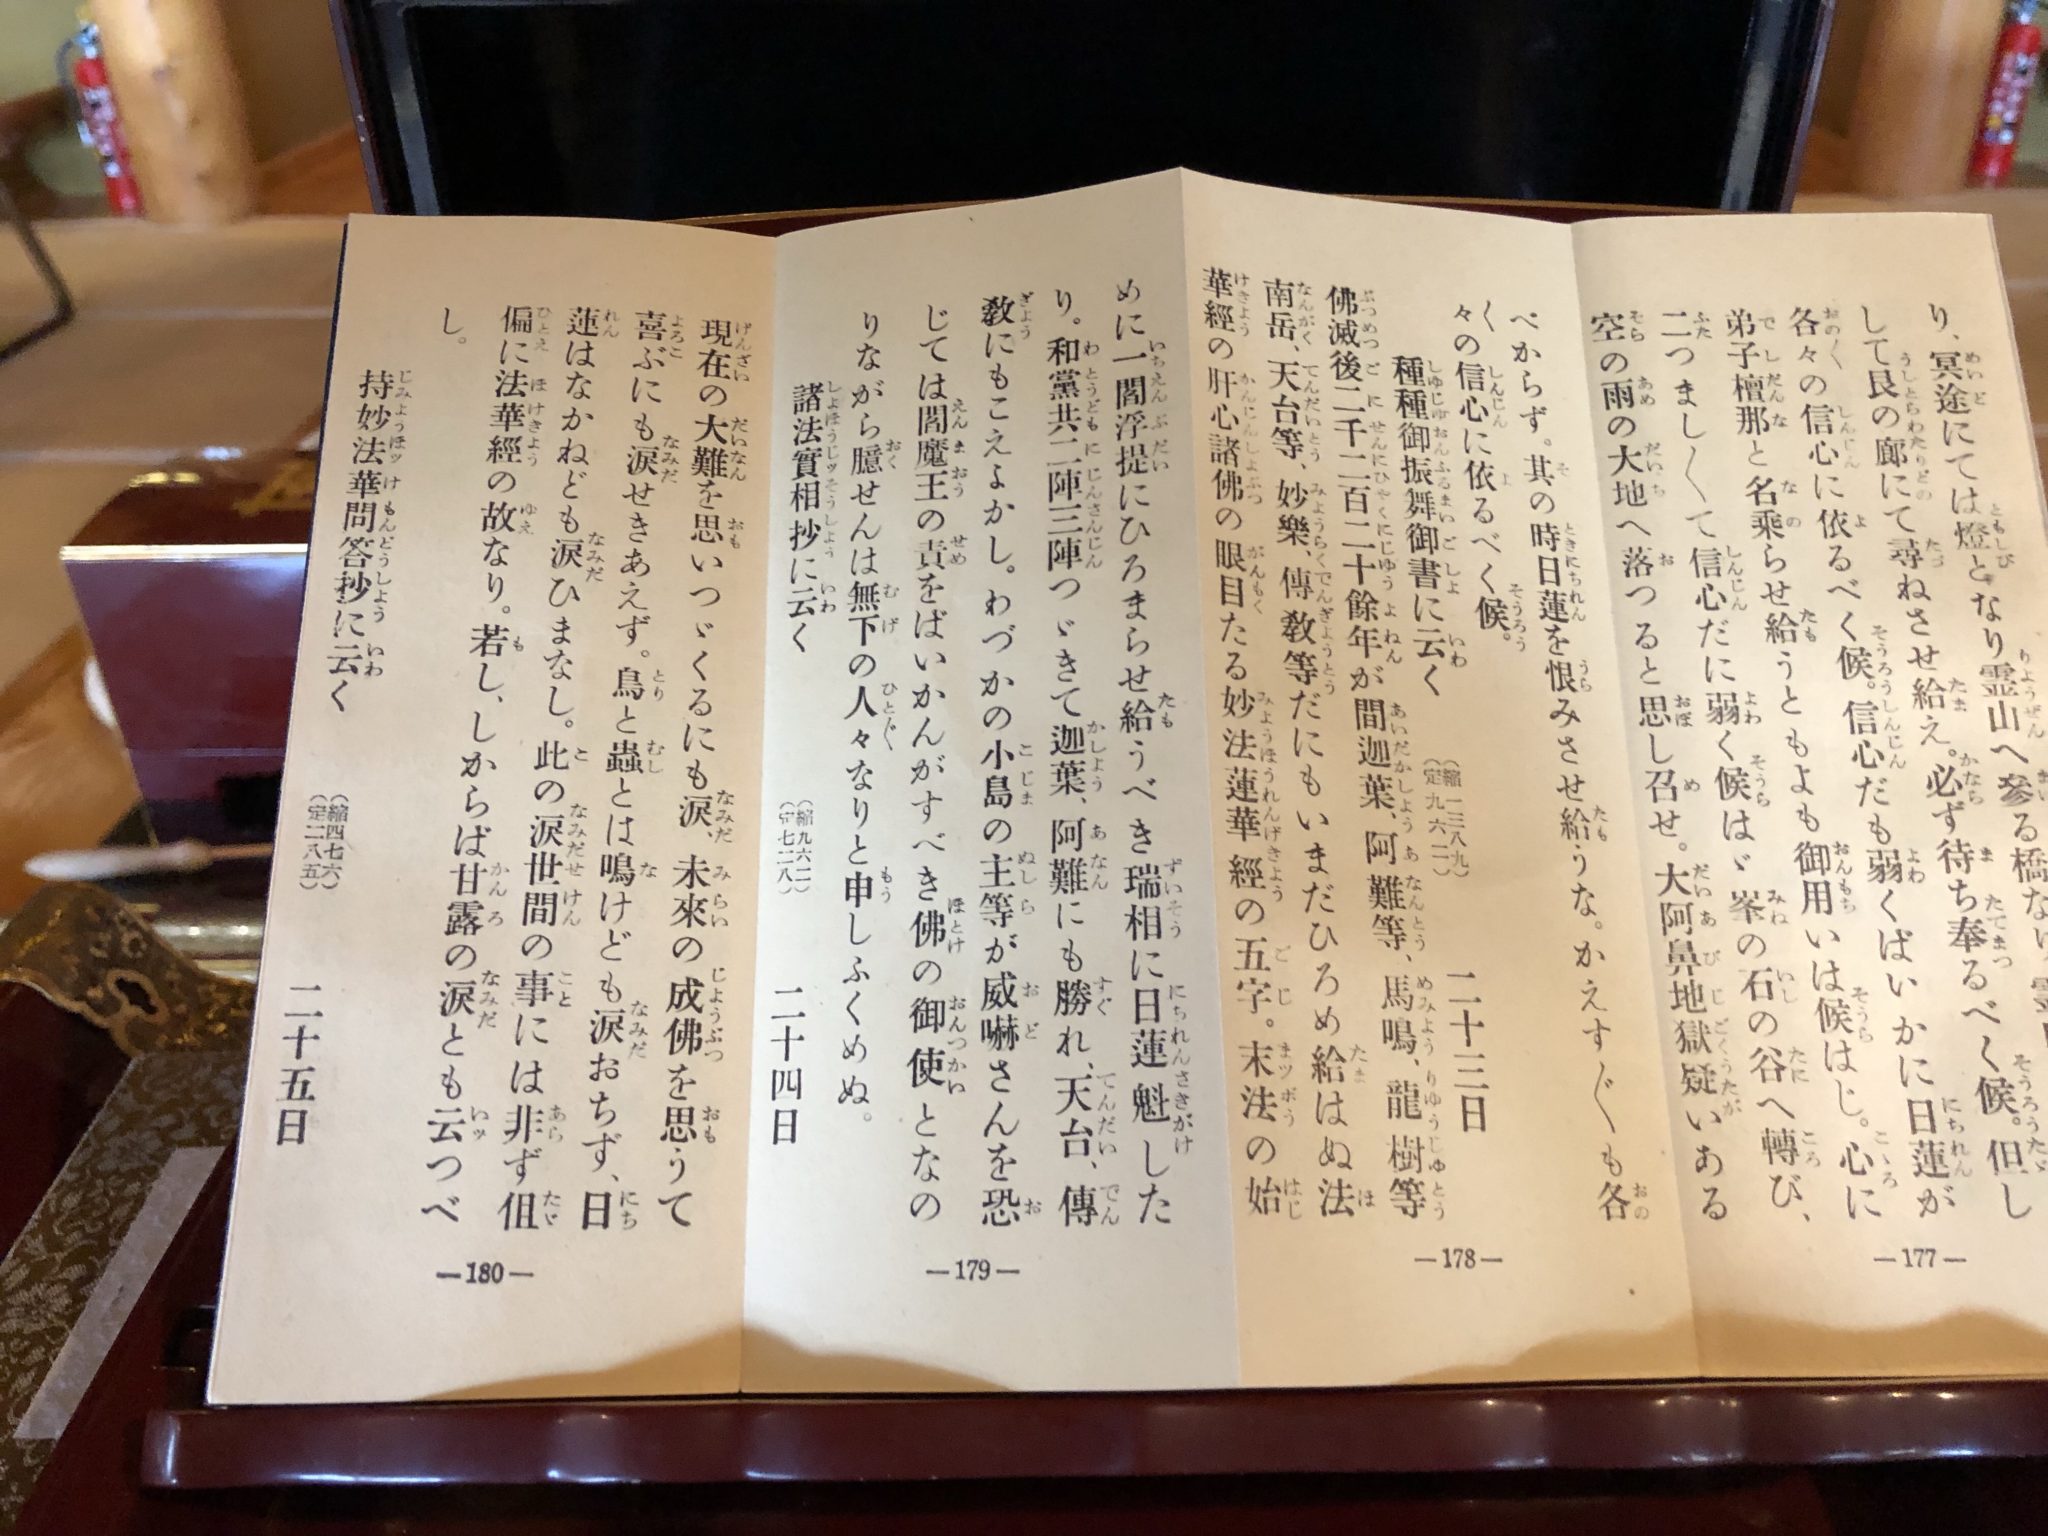 り、冥途にては燈となり霊山へ參る橋なり。霊山
して艮の廊にて尋ねさせ給え。必ず待ち奉るべく候。但し
各々の信心に依るべく候。信心だも弱くばいかに日蓮が
弟子檀那と名乘らせ給うともよも御用いは候はじ。心に
二つましく〵て信心だに弱く候はゞ峯の石の谷へ轉び、
空の雨の大地へ落つると思し召せ。大阿鼻地獄疑いある
—177—
べからず。其の時日蓮を恨みさせ給うな。かえすぐ〵も各
々の信心に依るべく候。
種種御振舞御書に云く
(縮一三八九)
(定九六二)
二十三日
佛滅後二千二百二十餘年が間迦葉、阿難等、馬鳴、龍樹等
南岳、天台等、妙樂、傳敎等だにもいまだひろめ給はぬ法
華經の肝心諸佛の眼目たる妙法蓮華經の五字。末法の始
—178—
めに一閻浮提にひろまらせ給うべき瑞相に日蓮魁した
り。和黨共二陣三陣つゞきて迦葉、阿難にも勝れ、天台、傳
敎にもこえよかし。わづかの小島の主等が威嚇さんを恐
じては閻魔王の責をばいかんがすべき佛の御使となの
りながら臆せんは無下の人々なりと申しふくめぬ。
諸法實相抄に云く
(縮九六二)
(定七二八)
二十四日
—179—
現在の大難を思いつゞくるにも涙、未來の成佛を思うて
喜ぶにも涙せきあえず。鳥と蟲とは鳴けども涙おちず、日
蓮はなかねども涙ひまなし。此の涙世間の事には非ず但
偏に法華經の故なり。若し、しからば甘露の涙とも云つべ
し。
持妙法華問答抄に云く
(縮四七六)
(定二八五)
二十五日
—180—